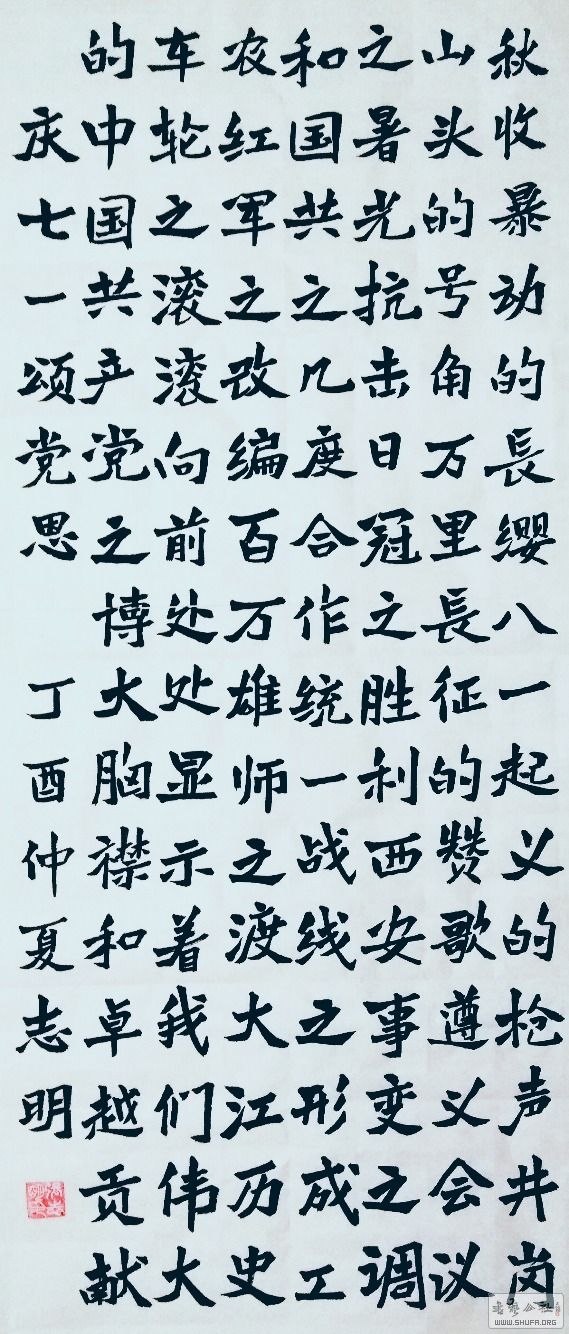 秋收暴动的長缨八一起义的枪声井岗
山头的号角万里長征的赞歌遵义会议
之暑光抗击日冠之胜利西安事变之调
和国共之几度合作统一战线之形成工
农红军之改编百万雄师之渡大江历史
车轮之滚滚向前处处显示着我们伟大
的中国共产党之博大胸襟和卓越贡献
庆七一颂党思 丁酉仲夏志明
书法公社
WWW.SHUFA.ORG